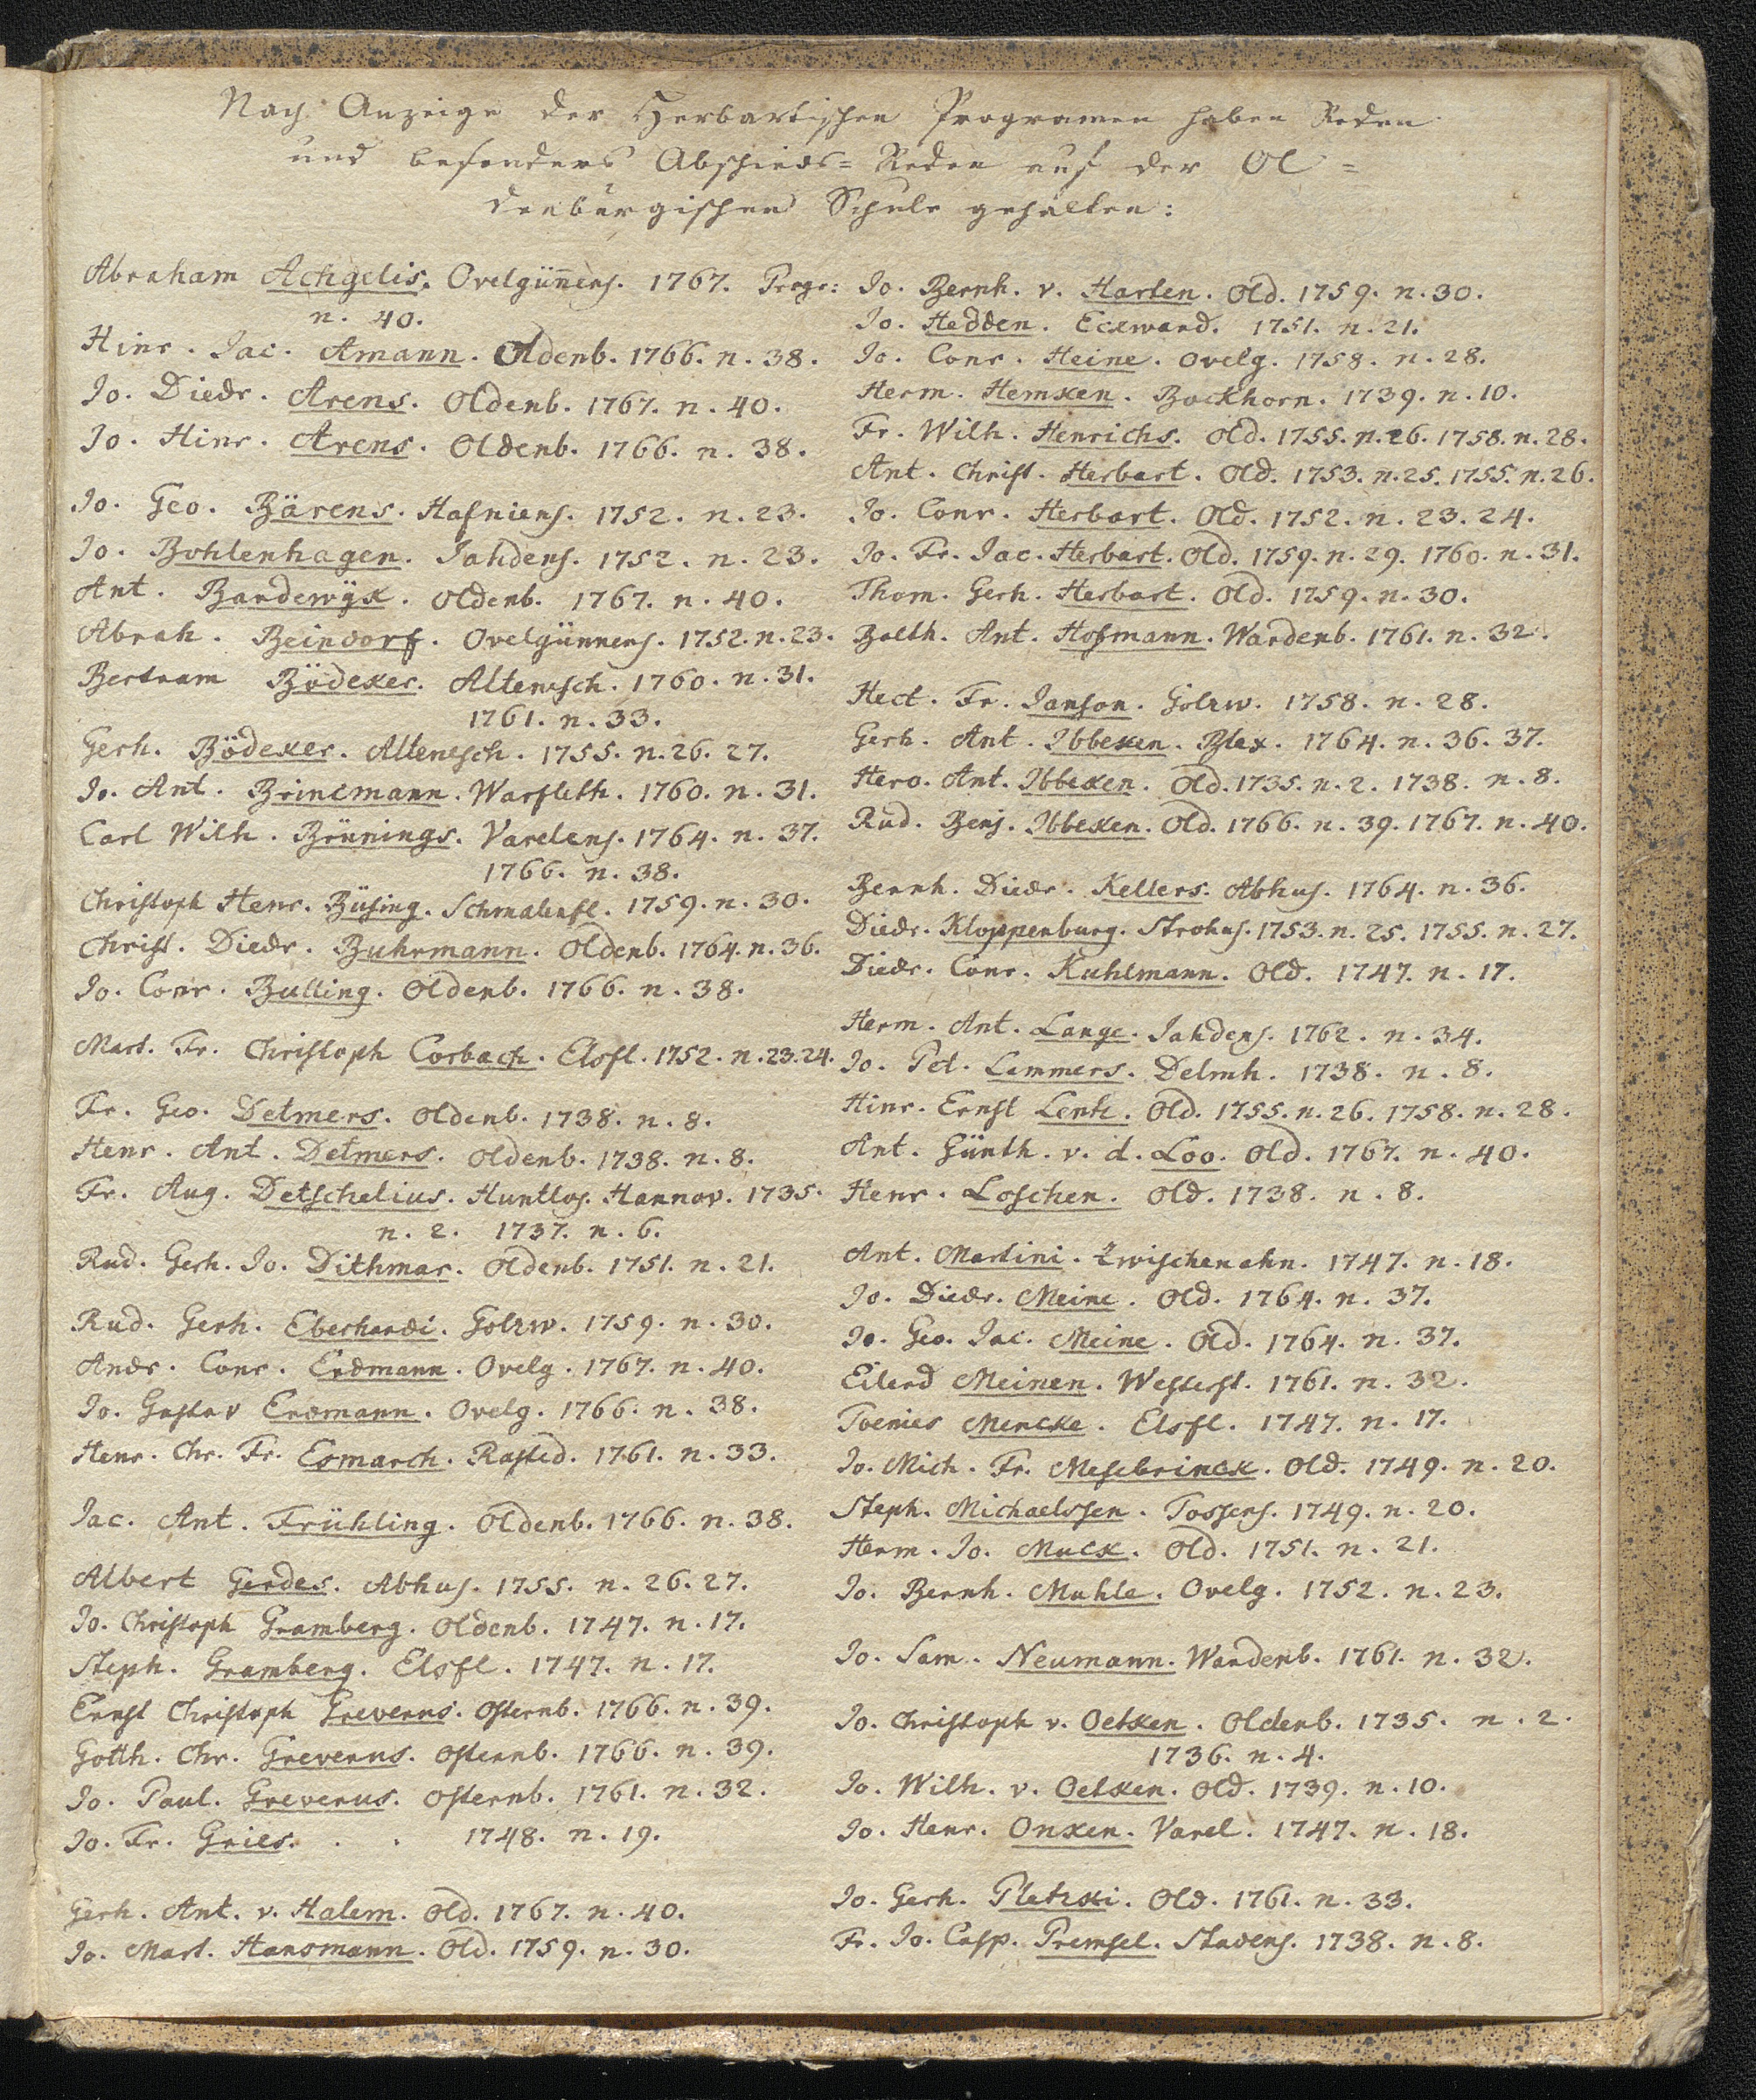 Nach Anzeige der Herbartischen Programen haben Reden
und besonders Abschieds= Reden auf der Ol=
denburgischen Schule gehalten:
Abraham Achgelis. Ovelgün̅ens. 1767. Progr:
n. 40.
Hinr. Jac. Amann. Oldenb. 1766. n. 38.
Jo. Diedr. Arens. Oldenb. 1767. n. 40.
Jo. Hinr. Arens. Oldenb. 1766. n. 38.
Jo. Geo. Bärens. Hafniens. 1752. n. 23.
Jo. Bohlenhagen. Jahdens. 1752. n. 23.
Ant. Bardewÿk. Oldenb. 1767. n. 40.
Abrah. Beindorf. Ovelgünnens. 1752. n. 23.
Bertram Bödeker. Altenesch. 1760. n. 31.
1761. n. 33.
Gerh. Bödeker. Altenesch. 1755. n. 26. 27.
Jo. Ant. Brincmann. Warfleth. 1760. n. 31.
Carl Wilh. Brünings. Varelens. 1764. n. 37.
1766. n. 38.
Christoph Henr. Büsing. Schmalenfl. 1759. n. 30.
Christ. Diedr. Buhrmann. Oldenb. 1764. n. 36.
Jo. Conr. Bulling. Oldenb. 1766. n. 38.
Mart. Fr. Christoph Corbach. Elsfl. 1752. n. 23. 24.
Fr. Geo. Detmers. Oldenb. 1738. n. 8.
Henr. Ant. Detmers. Oldenb. 1738. n. 8.
Fr. Aug. Detschelius. Huntlos. Hannov. 1735.
n. 2. 1737. n. 6.
Rud. Gerh. Jo. Dithmar. Oldenb. 1751. n. 21.
Rud. Gerh. Eberhardi. Golzw. 1759. n. 30.
Andr. Conr. Erdmann. Ovelg. 1767. n. 40.
Jo. Gustav Erdmann. Ovelg. 1766. n. 38.
Henr. Chr. Fr. Esmarch. Rasted. 1761. n. 33.
Jac. Ant. Frühling. Oldenb. 1766. n. 38.
Albert Gerdes. Abhus. 1755. n. 26. 27.
Jo. Christoph Gramberg. Oldenb. 1747. n. 17.
Steph. Gramberg. Elsfl. 1747. n. 17.
Ernst Christoph Greverus. Osternb. 1766. n. 39.
Gotth. Chr. Greverus. Osternb. 1766. n. 39.
Jo. Paul. Greverus. Osternb. 1761. n. 32.
Jo. Fr. Gries. . . 1748. n. 19.
Gerh. Ant. v. Halem. Old. 1767. n. 40.
Jo. Mart. Hansmann. Old. 1759. n. 30.
Jo. Bernh. v. Harten. Old. 1759. n. 30.
Jo. Hedden. Eckward. 1751. n. 21.
Jo. Conr. Heine. Ovelg. 1758. n. 28.
Herm. Hemken. Bockhorn. 1739. n. 10.
Fr. Wilh. Henrichs. Old. 1755. n. 26. 1758. n. 28.
Ant. Christ. Herbart. Old. 1753. n. 25. 1755. n. 26.
Jo. Conr. Herbart. Old. 1752. n. 23. 24.
Jo. Fr. Jac. Herbart. Old. 1759. n. 29. 1760. n. 31.
Thom. Gerh. Herbart. Old. 1759. n. 30.
Balth. Ant. Hofmann. Wardenb. 1761. n. 32.
Hect. Fr. Janson. Golzw. 1758. n. 28.
Gerh. Ant. Ibbeken. Blex. 1764. n. 36. 37.
Hero. Ant. Ibbeken. Old. 1735. n. 2. 1738. n. 8.
Rud. Benj. Ibbeken. Old. 1766. n. 39. 1767. n. 40.
Bernh. Diedr. Kellers. Abhus. 1764. n. 36.
Diedr. Kloppenburg. Strohus. 1753. n. 25. 1755. n. 27.
Diedr. Conr. Kuhlmann. Old. 1747. n. 17.
Herm. Ant. Lange. Jahdens. 1762. n. 34.
Jo. Pet. Lemmers. Delmh. 1738. n. 8.
Hinr. Ernst Lentz. Old. 1755. n. 26. 1758. n. 28.
Ant. Günth. v. d. Loo. Old. 1767. n. 40.
Henr. Loschen. Old. 1738. n. 8.
Ant. Martini. Zwischenahn. 1747. n. 18.
Jo. Diedr. Meine. Old. 1764. n. 37.
Jo. Geo. Jac. Meine. Old. 1764. n. 37.
Eilerd Meinen. Westerst. 1761. n. 32.
Toenies Mencke. Elsfl. 1747. n. 17.
Jo. Mich. Fr. Mesebrinck. Old. 1749. n. 20.
Steph. Michaelssen. Tossens. 1749. n. 20.
Herm. Jo. Muck. Old. 1751. n. 21.
Jo. Bernh. Muhle. Ovelg. 1752. n. 23.
Jo. Sam. Neumann. Wardenb. 1761. n. 32.
Jo. Christoph v. Oetken. Oldenb. 1735. n. 2.
1736. n. 4.
Jo. Wilh. v. Oetken. Old. 1739. n. 10.
Jo. Henr. Onken. Varel. 1747. n. 18.
Jo. Gerh. Pletzki. Old. 1761. n. 33.
Fr. Jo. Casp. Premsel. Stadens. 1738. n. 8.